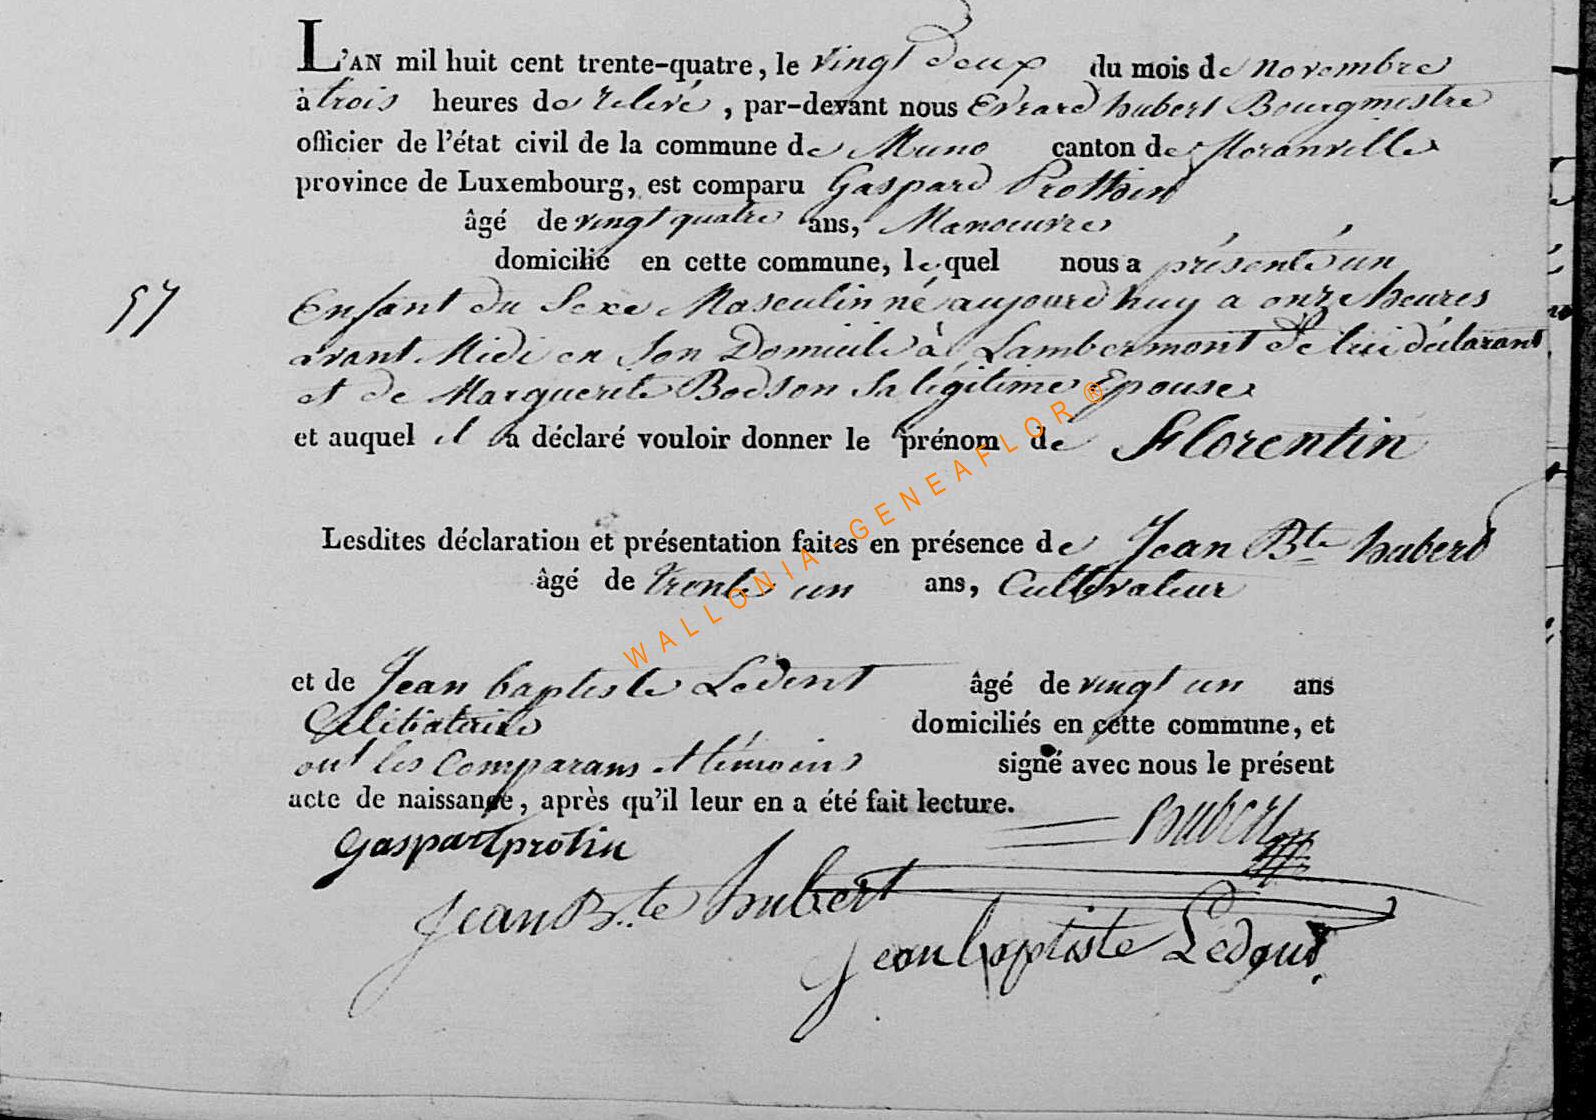 L'AN mil huit cent trente-quatre, le vingt deux du mois de novembre
à trois heures de relevé, par-devant nous Evrard hubert Bourgmestre
officier de l'état civil de la commune de Muno canton de floranville
province de Luxembourg, est comparu Gaspard Prothin
âgé de vingt quatre ans, Manoeuvre
domicilié en cette commune, lequel nous a présenté un
57
Enfant du Sexe Masculin né aujourd'huy a onze heures
avant Midi en Son Domicile à Lambermont de lui déclarant
et de Marguerite Bodson Sa légitime Epouse
et auquel il a déclaré vouloir donner le prénom de Florentin
Lesdites déclaration et présentation faites en présence de Jean Bte hubert
âgé de trente un ans, Cultivateur
et de Jean baptiste Ledent âgé de vingt un ans
Célibataire domiciliés en cette commune, et
ont les Comparans et témoins signé avec nous le présent
acte de naissance, après qu'il leur en a été fait lecture.
hubert
Gaspart protin
Jean Bte hubert
jean baptiste Ledent
WALLONIA-GENEAFLOR®